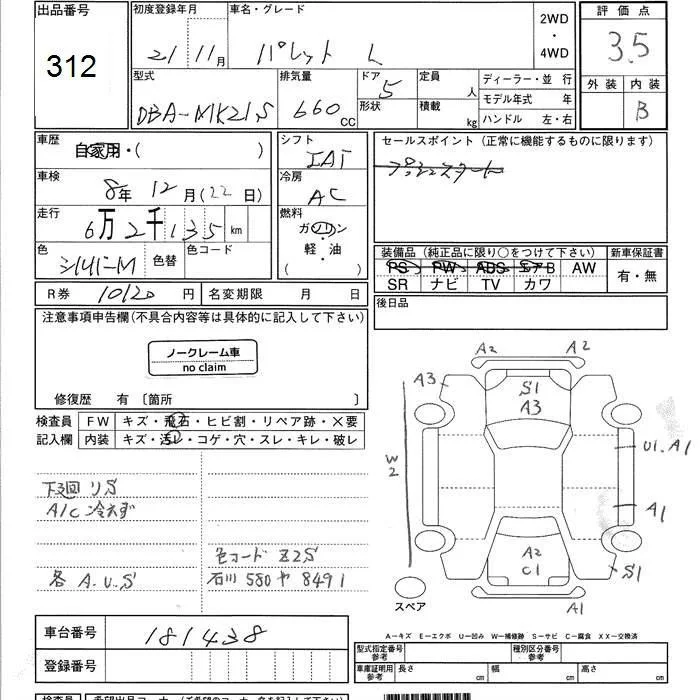 出品番号
312
初度登録年月
21 11月
車名・グレード
パレット L
2WD
・
4WD
評価点
3.5
外装 内装
B
型式
DBA-MK21S
排気量
660 CC
ドア
5
形状
定員 人
積載 kg
ディーラー・並 行
モデル年式 年
ハンドル 左・右
車歴
自家用・( )
シフト
IAT
セールスポイント (正常に機能するものに限ります)
プッシュスタート
車検
8年 12月(22日)
冷房
AC
走行
6万 2千 135 km
燃料
ガソリン
・
軽・油
( )
色
シルバーM
色替
色コード
装備品 (純正品に限り○をつけて下さい)
新車保証書
PS PW ABS エアB AW
有・無
SR ナビ TV カワ
R券 10120 円
名変期限 月 日
後日品
注意事項申告欄(不具合内容等は具体的に記入して下さい)
ノークレーム車
no claim
修復歴 有 〔箇所 〕
検査員
記入欄
FW キズ・飛石・ヒビ割・リペア跡・×要
内装 キズ・汚レ・コゲ・穴・スレ・キレ・破レ
下廻リS
A/C 冷えず
各 A.U.S
色コード Z2S
石川 580 ヤ 8491
A2 A2
A3
S1
A3
W2
U1.A1
A1
A2
C1
S1
A1
スペア
A-キズ E-エクボ U-凹み W-補修跡 S-サビ C-腐食 XX-交換済
車台番号
181438
登録番号
型式指定番号
参考
種別区分番号
参考
車庫証明用
参考
長さ cm
幅 cm
高さ cm